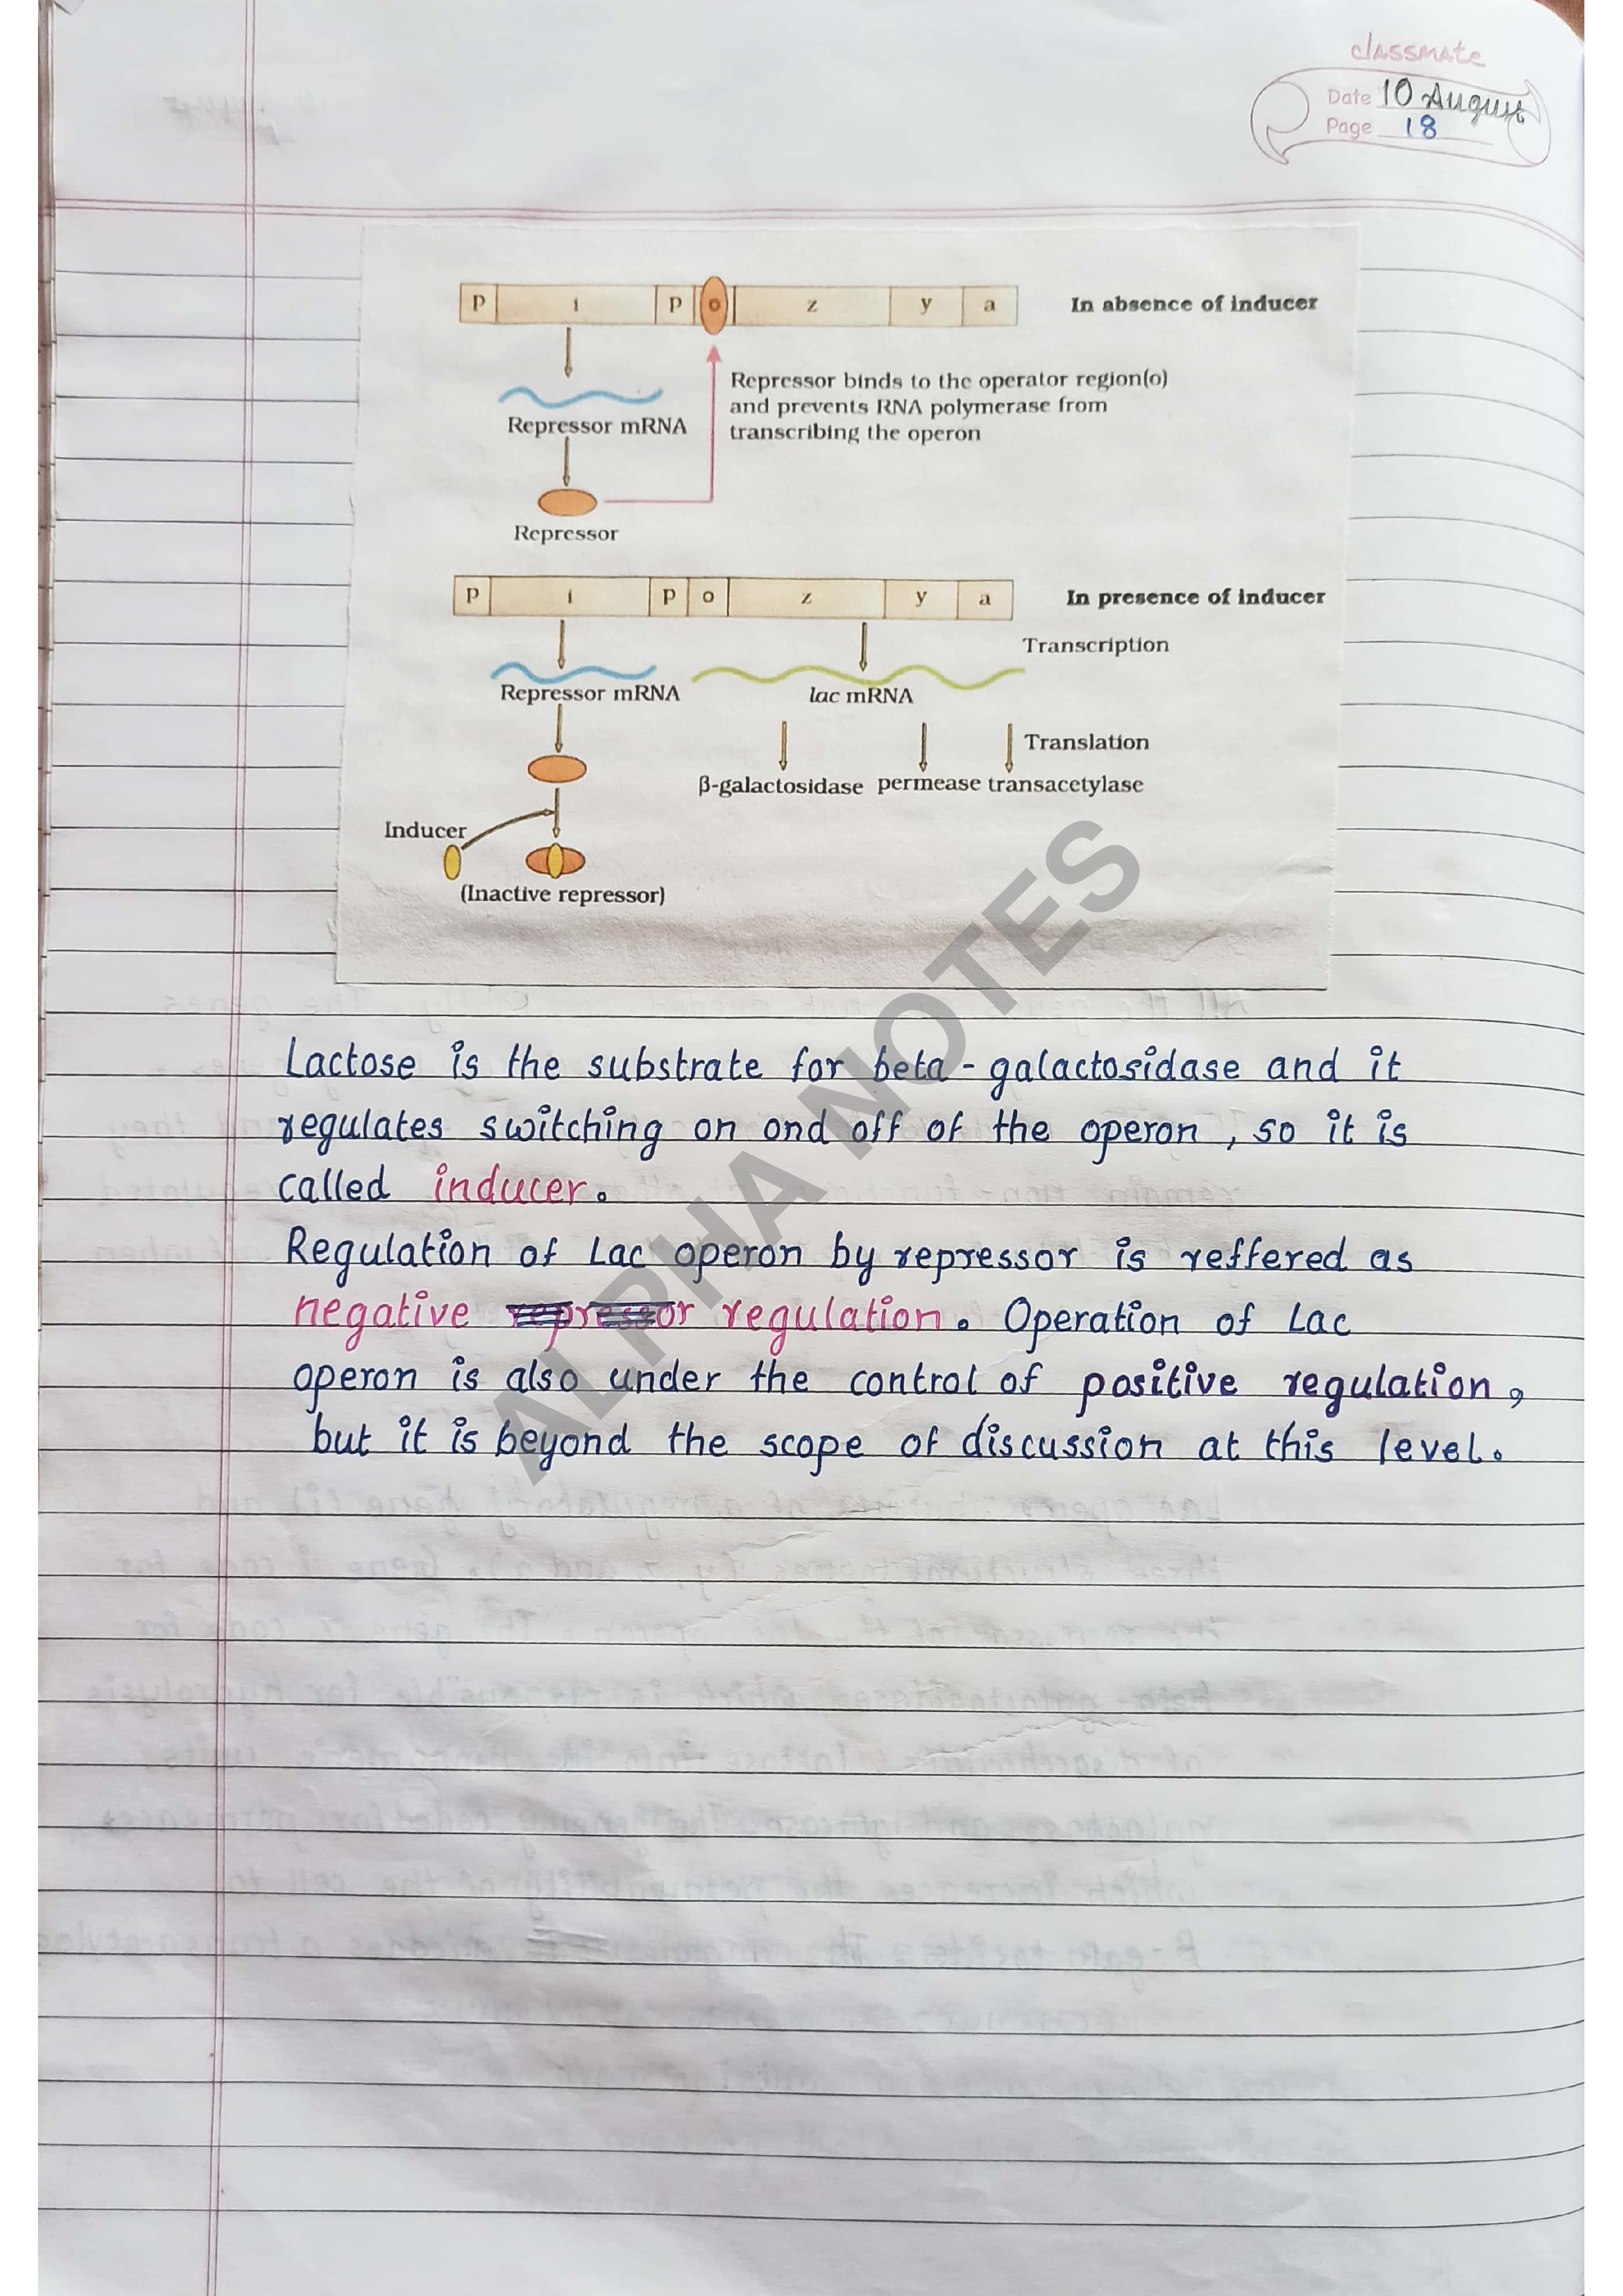 classmate
Date 10 August
Page 18
p i p o z y a In absence of inducer
Repressor binds to the operator region(o)
and prevents RNA polymerase from
transcribing the operon
Repressor mRNA
Repressor
p i p o z y a In presence of inducer
Transcription
Repressor mRNA lac mRNA
Translation
β-galactosidase permease transacetylase
Inducer
(Inactive repressor)
Lactose is the substrate for beta - galactosidase and it
regulates switching on ond off of the operon, so it is
called inducer.
Regulation of Lac operon by repressor is reffered as
negative repressor regulation. Operation of Lac
operon is also under the control of positive regulation,
but it is beyond the scope of discussion at this level.
ALPHA NOTES